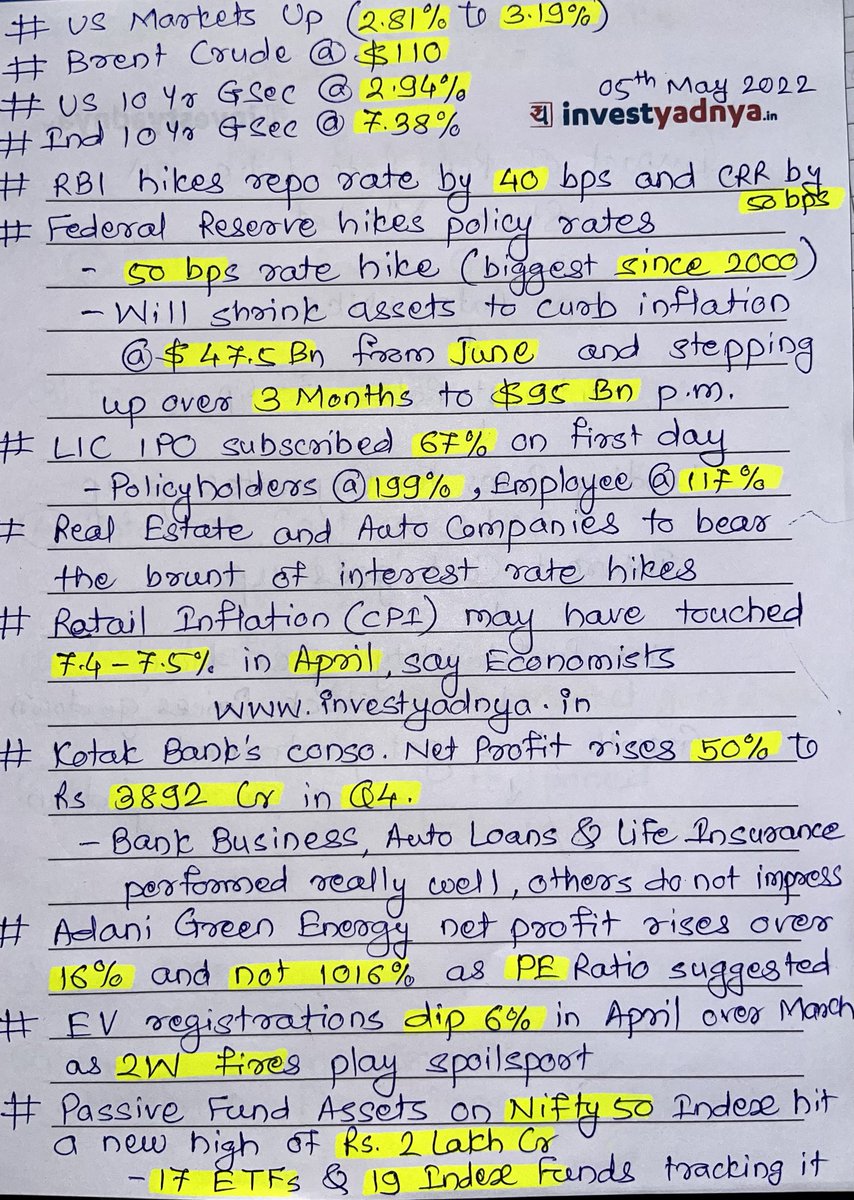 # US Markets Up (2.81% to 3.19%)
# Brent Crude @ $110
# US 10 Yr GSec @ 2.94%
05th May 2022
# Ind 10 Yr GSec @ 7.38%
investyadnya.in
# RBI hikes repo rate by 40 bps and CRR by
50 bps
# Federal Reserve hikes policy rates
- 50 bps rate hike (biggest since 2000)
- Will shrink assets to curb inflation
@ $47.5 Bn from June and stepping
up over 3 Months to $95 Bn p.m.
# LIC IPO subscribed 67% on first day
- Policyholders @ 199%, Employee @ 117%
# Real Estate and Auto Companies to bear
the brunt of interest rate hikes
# Retail Inflation (CPI) may have touched
7.4 - 7.5% in April, say Economists
www.investyadnya.in
# Kotak Bank's conso. Net Profit rises 50% to
Rs 3892 Cr in Q4.
- Bank Business, Auto Loans & Life Insurance
performed really well, others do not impress
# Adani Green Energy net profit rises over
16% and not 1016% as PE Ratio suggested
# EV registrations dip 6% in April over March
as 2W fires play spoilsport
# Passive Fund Assets on Nifty 50 Index hit
a new high of Rs. 2 Lakh Cr
- 17 ETFs & 19 Index Funds tracking it